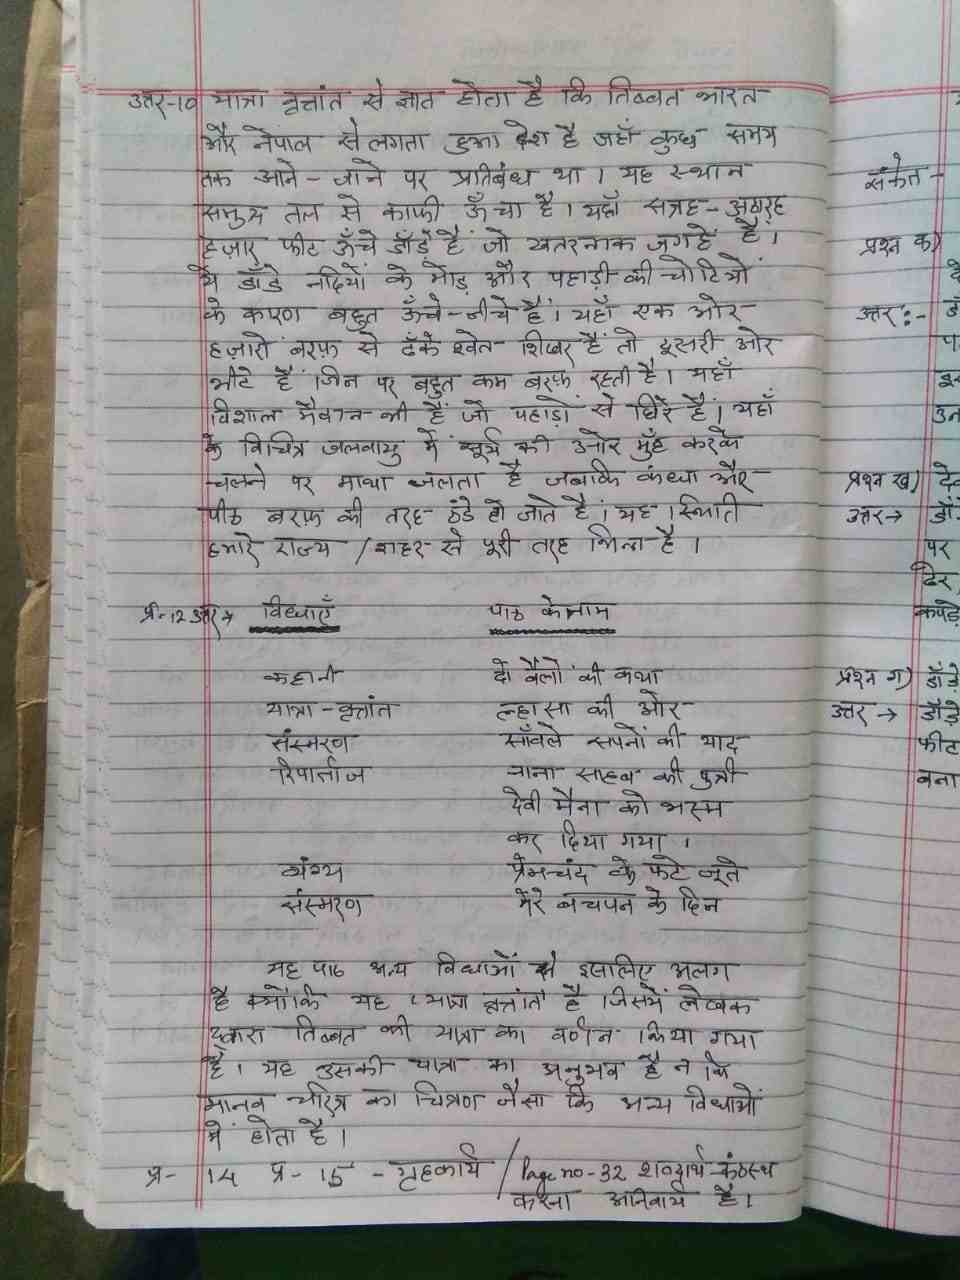 उत्तर-10 यात्रा वृत्तांत से ज्ञात होता है कि तिब्बत भारत
और नेपाल से लगता हुआ देश है जहाँ कुछ समय
तक आने-जाने पर प्रतिबंध था। यह स्थान
समुद्र तल से काफी ऊँचा है। यहाँ सत्रह-अठारह
हज़ार फीट ऊँचे डाँड़े हैं जो खतरनाक जगहें हैं।
ये डाँडे नदियों के मोड़ और पहाड़ी की चोटियों
के कारण बहुत ऊँचे-नीचे हैं। यहाँ एक ओर
हज़ारों बरफ़ से ढँके श्वेत शिखर हैं तो दूसरी ओर
भीटे हैं जिन पर बहुत कम बरफ़ रहती है। यहाँ
विशाल मैदान भी हैं जो पहाड़ों से घिरे हैं। यहाँ
के विचित्र जलवायु में सूर्य की ओर मुँह करके
चलने पर माथा जलता है जबकि कंधा और
पीठ बरफ़ की तरह ठंडे हो जाते हैं। यह स्थिति
हमारे राज्य / शहर से पूरी तरह भिन्न है।
प्र-12 उत्तर→ विधाएँ पाठ के नाम
कहानी दो बैलों की कथा
यात्रा-वृत्तांत ल्हासा की ओर
संस्मरण साँवले सपनों की याद
रिपोर्ताज नाना साहब की पुत्री
देवी मैना को भस्म
कर दिया गया।
व्यंग्य प्रेमचंद के फटे जूते
संस्मरण मेरे बचपन के दिन
यह पाठ अन्य विधाओं से इसलिए अलग
है क्योंकि यह 'यात्रा वृत्तांत' है जिसमें लेखक
द्वारा तिब्बत की यात्रा का वर्णन किया गया
है। यह उसकी यात्रा का अनुभव है न कि
मानव चरित्र का चित्रण जैसा कि अन्य विधाओं
में होता है।
प्र- 14 प्र- 15 - गृहकार्य / Page no-32 शब्दार्थ कंठस्थ
करना अनिवार्य है।
संकेत -
प्रश्न क)
उत्तर:-
प्रश्न ख)
उत्तर→
पर
कपड़े
प्रश्न ग) डाँड़े
उत्तर → डाँड़े
फीट